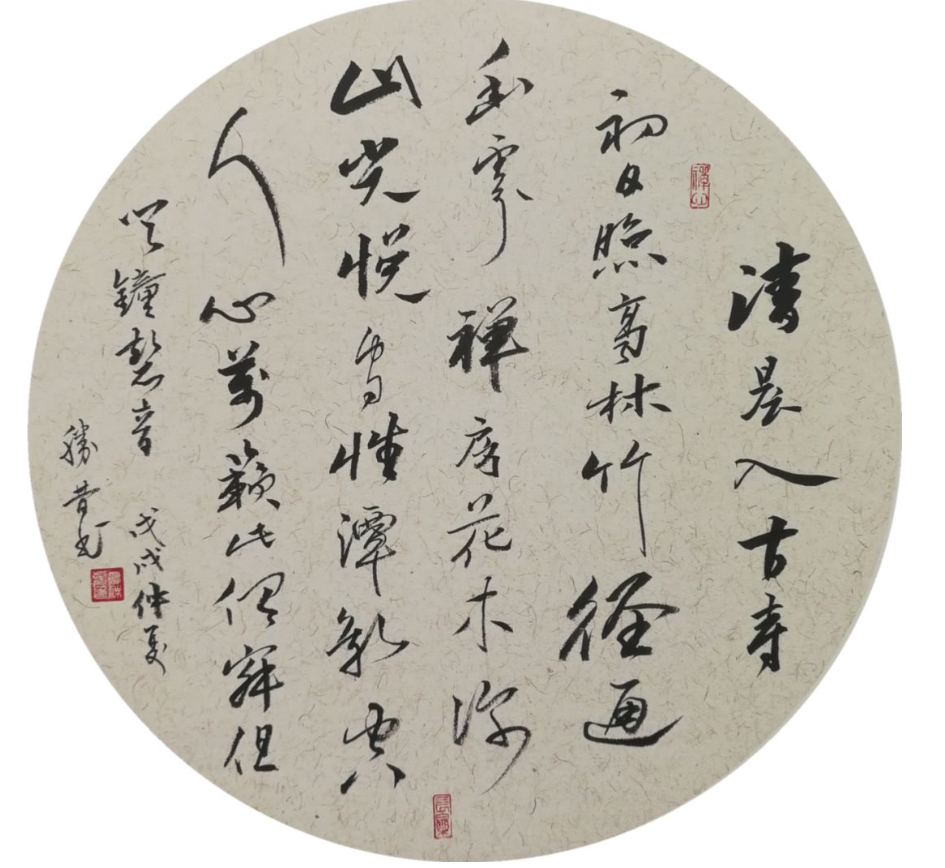 清晨入古寺
初日照高林竹径通
幽處禅房花木深
山光悦鸟性潭影空
人心萬籁此俱寂但
聞鐘磬音 戊戌仲夏
勝书